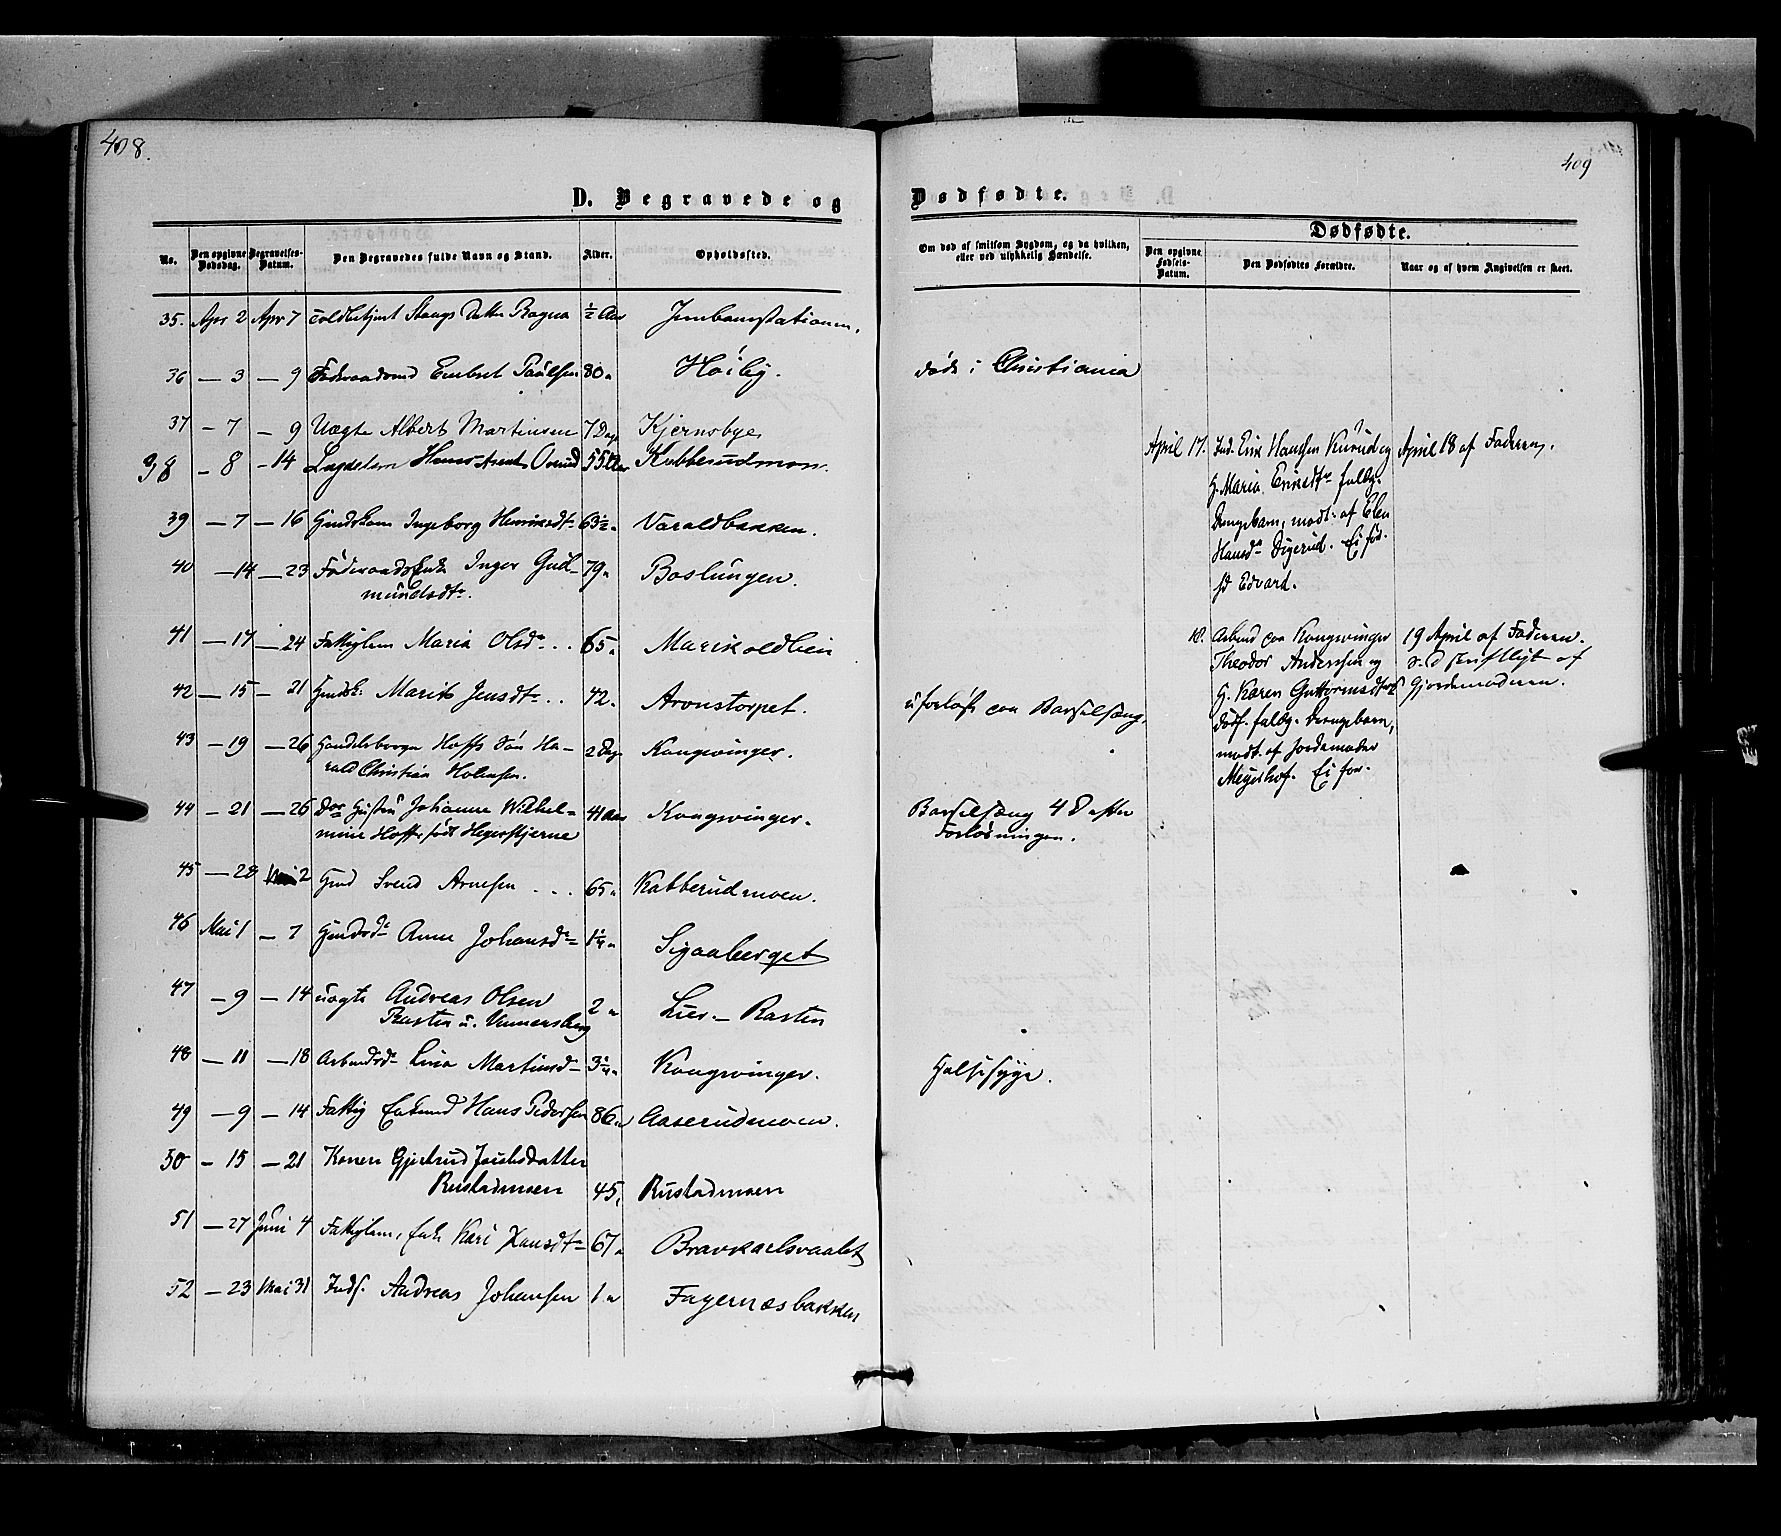 408.
409
D. Begravede og Dødfødte.
No.
Den opgivne Dødsdag.
Begravelses-Datum.
Den Begravedes fulde Navn og Stand.
Alder.
Opholdssted.
Om død af smitsom Sygdom, og da hvilken, eller ved ulykkelig Hændelse.
Dødfødte.
Den opgivne Fødsels-Datum.
Den Dødfødtes Forældre.
Naar og af hvem Angivelsen er skeet.
35. Apr 2 Apr 7 Datter Ragna ½ Aar Jernbanestationen.
36 — 3 — 9 Føderaadsmd Embret Paulsen 80 " Høiby. døde i Christiania
37 — 7 — 9 Uægte Albert Martinsen 7 Dage Kjernsbye
38 — 8 — 14 Lægdslem Hans 55 Aar Kubberudmoen.
39 — 7 — 16 Gmdskone Ingeborg Henriksdtr 63½ " Varaldbakken.
40 — 14 — 23 Føderaadsenke Inger Gud-
mundsdtr. 79 " Baslungen.
41 — 17 — 24 Fattiglem Maria Olsdr . . 65 " Marikoldlien
42 — 15 — 21 Gmdsk. Marit Jensdtr . . 42 " Aronstorpet. uforløst paa Barselseng.
43 — 19 — 26 Handelsborger Hoffs Søn Ha-
rald Christian 2 Dage Kongsvinger.
44 — 21 — 26 Do Hustru Johanne Wilhel-
mine Hoff født Hegerstjerne 41 Aar Kongsvinger. Barselseng 4 D after
Forløsningen.
45 — 28 Mai 2 Gmd Svend Arnesen . . . 65 " Kabberudmoen.
46 Mai 1 — 7 Gmdsdr Anne Johansdr 1¼ " Sigaaberget
47 — 9 — 14 uægte Andreas Olsen
Rasten u. Vennersberg 2 " Lier - Rasten
48 — 11 — 18 Arbmdsdr Lina Martinsd 3¼ " Kongsvinger. Halssyge.
49 — 9 — 14 Fattig Enkemd Hans Pedersen 86 " Aaserudmoen.
50 — 15 — 21 Konen Gjertrud
Rustadmoen 45 " Rustadmoen
51 — 27 Juni 4 Fattiglem, Enke Kari Hansdtr 67 "
52 — 23 Mai 31 Inds. Andreas Johansen 1 " Fagernæsbakken
April 17. Ind. Erik Hansen Rurud og
H. Maria Eriksdtr fulbg.
Drengebarn, modt. af Elen
Hansdr Digerud. Ei før-
st Edvard.
April 18 af Faderen.
18. Arbmd paa Kongsvinger
Theodor Andersen og
H. Karen Guttormsdtr
dødf. fulbg. Drengebarn,
modt. af Jordemoder
Meyerhof. Ei før.
19 April af Faderen.
af
Gjordemoderen.